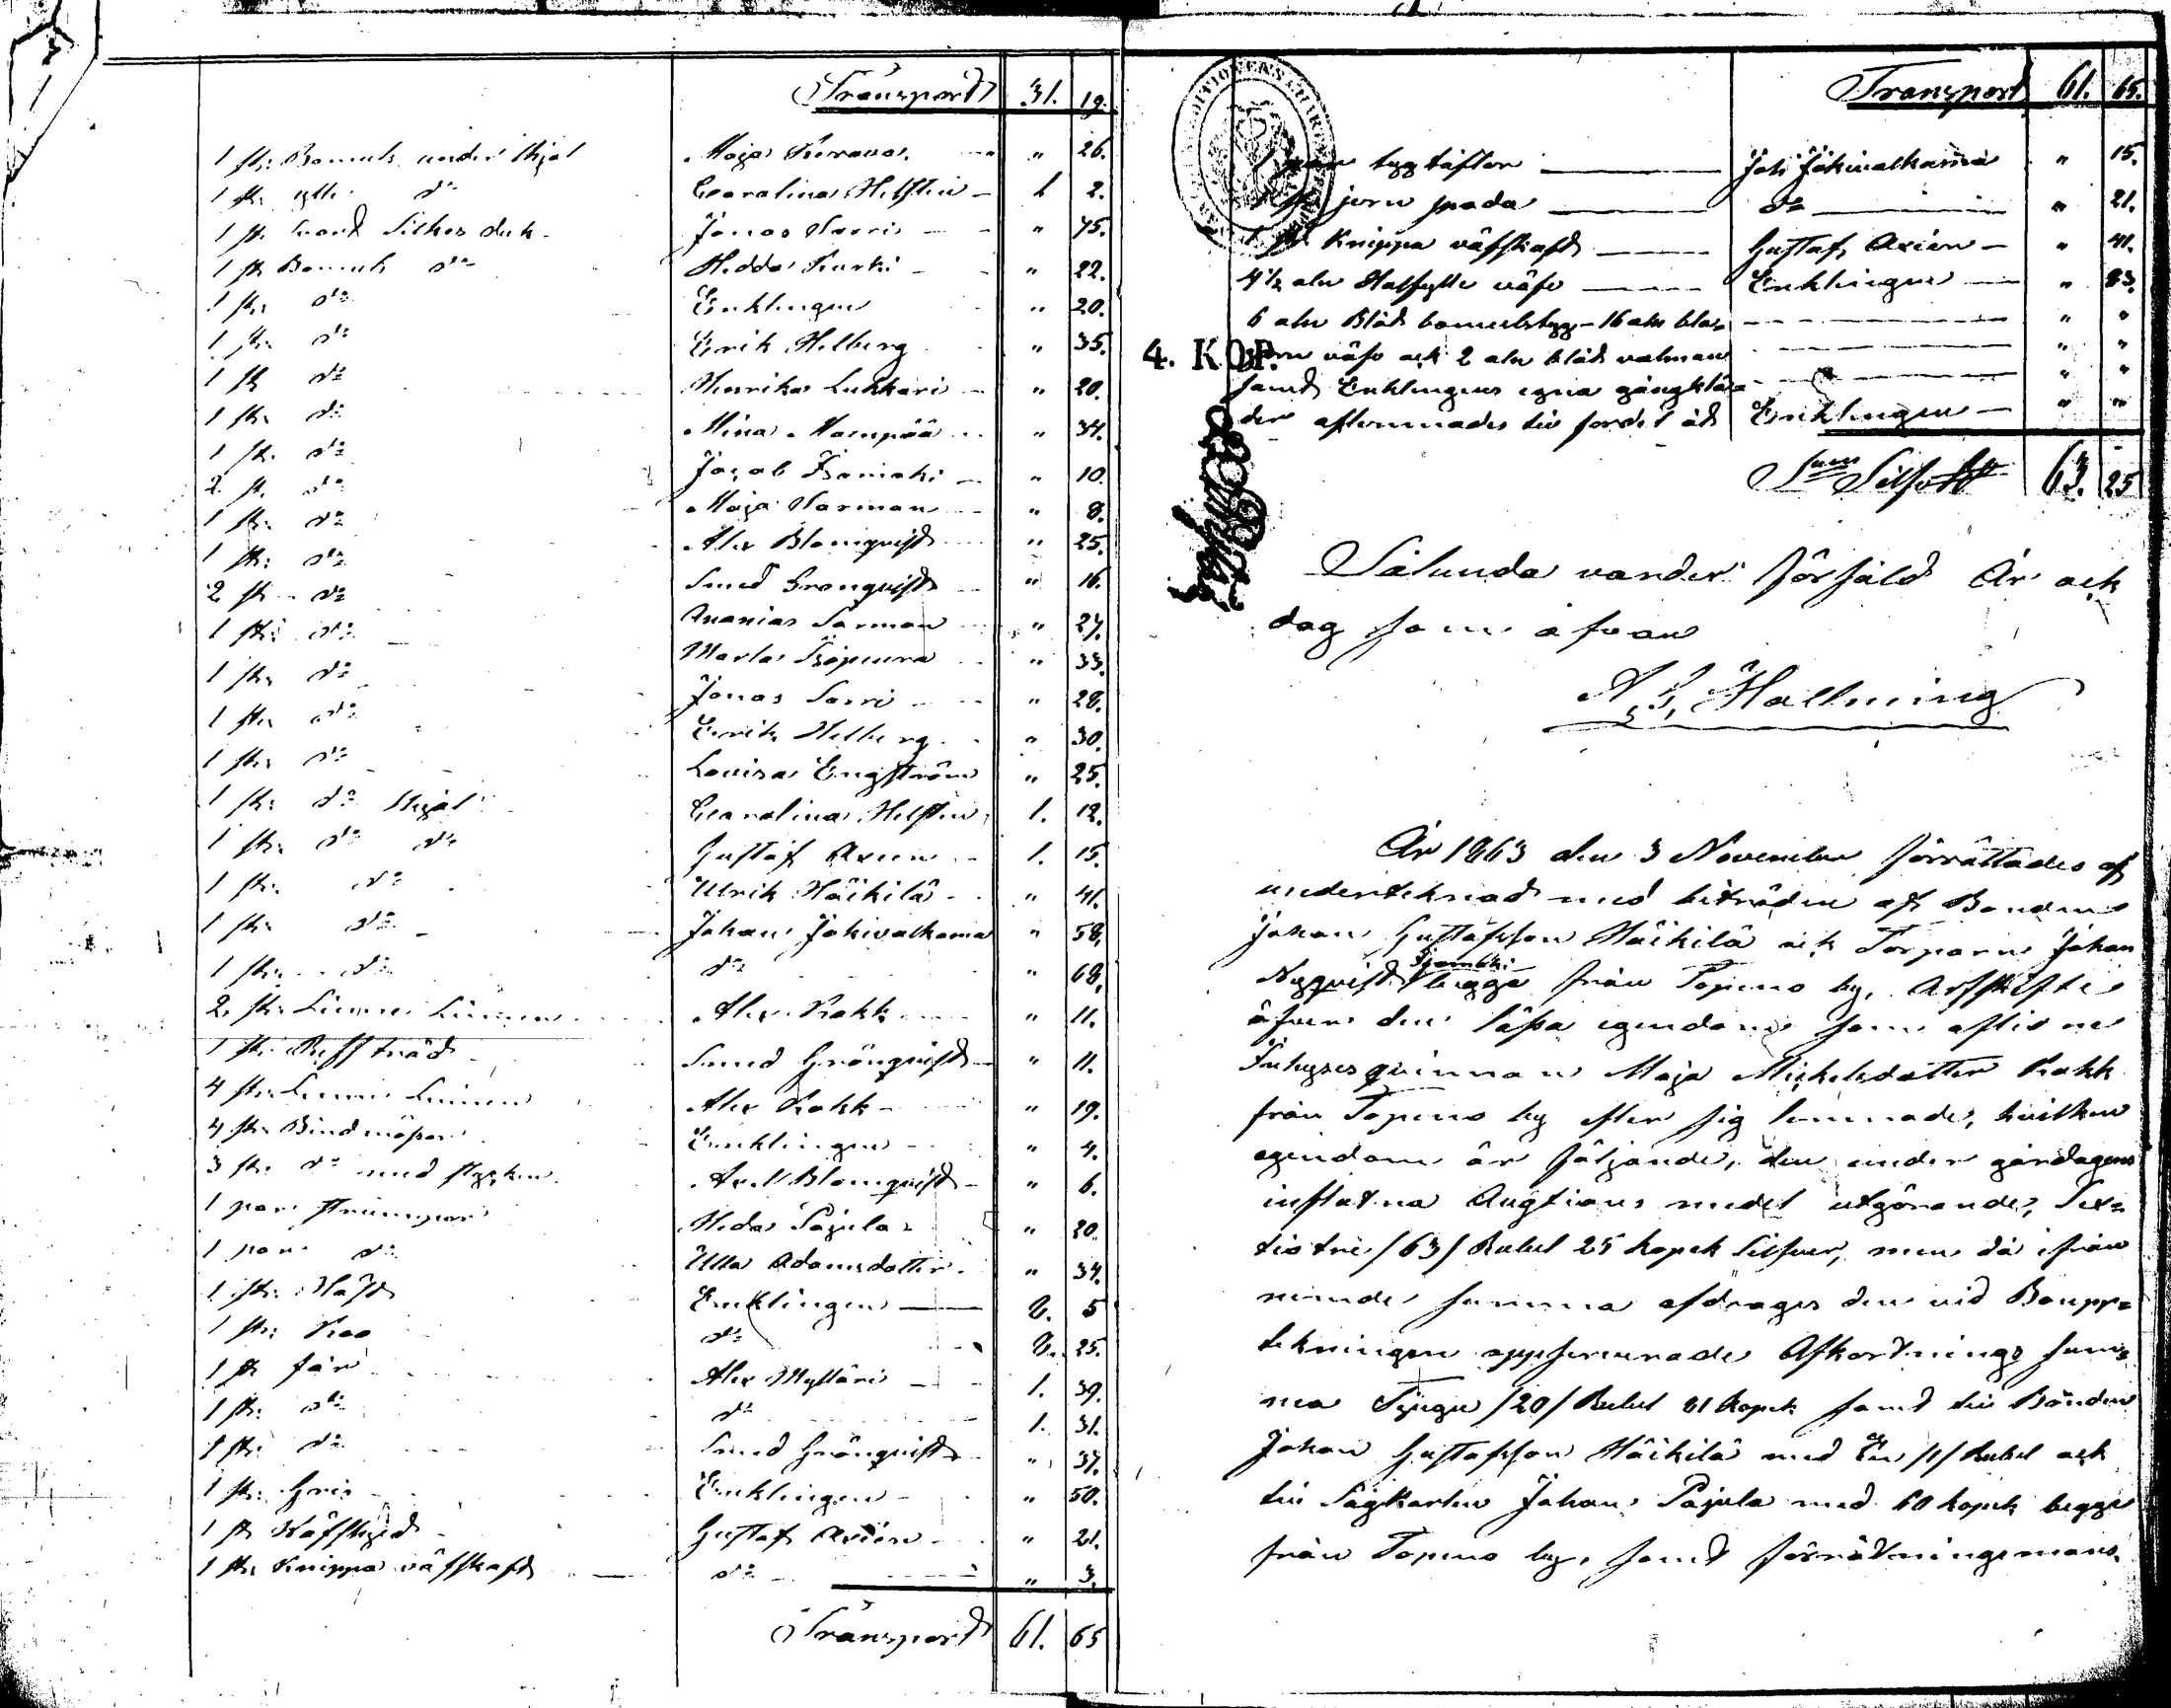 Transport 31. 19.
1 st: Bomuls under kjol Maja Kerava " 26.
1 st. ylle do Carolina Helsten 1 2.
1 st. Svart Silkes duk Jonas Sarri " 75.
1 st Bomuls do Hedda Kurki " 22.
1 st: do Enklingen " 20.
1 st: do Erik Helberg " 35.
1 st do Henrika Lukkari " 20.
1 st: do Mina Mampää " 34.
1 st. do Jacob " 10.
2 st. do Maja Sarman " 8.
1 st: do Alex Blomqvist " 25.
1 st: do Smed Granqvist " 16.
2 st do Ananias Sarman " 27.
1 st: do Marta " 33.
1 st: do Jonas Sarri " 28.
1 st: do Erik Helberg " 30.
1 st: do Lovisa Engström " 25.
1 st: do Kjol Carolina Helsten 1. 12.
1 st: do do Gustaf Axen 1. 15.
1 st: do Ulrik Häikilä " 41.
1 st: do Johan Jokivalkama " 58.
1 st: do do " 68.
2 st: Linne Linnen Alex Rokk " 11.
1 st: Refftråd Smed Grönqvist " 11.
4 st: Linne Linnen Alex Rokk " 19.
4 st: Bindmössor Enklingen " 4.
3 st: do med stycken Axel Blomqvist " 6.
1 par strumpor Heda Pajula " 20.
1 par do Ulla Adamsdotter " 34.
1 st: Häst Enklingen 8. 5
1 st: Koo do 8. 25.
1 st får Alex Mylläri 1. 39.
1 st: do do 1. 31.
1 st: do Smed Grönqvist " 37.
1 st: Gris Enklingen " 50.
1 st Wäfsked Gustaf Axién " 21.
1 st: Knippa väfskaft do " 3.
Transport 61. 65
Transport 61. 65.
1 par tygtäflor Joh Jokivalkama " 15.
1 st jern spada do " 21.
1 st Knippa väfskaft Gustaf Axién " 41.
4 1/2 aln Halfylle väfv Enklingen " 83.
6 aln Blåt bomulstyg - 16 aln bla= " "
väfv ock 2 aln blåt valman " "
4. KOP.
samt Enklingens egna gångklä= " "
der aflemnades til fordel åt Enklingen " "
Sum Silfver 63. 25
Sålunda vander försåld År ock
dag som ofvan
A. G. Hallming
År 1863 den 3 November förrättades af
undertcknad med biträden af Bonden
Johan Gustafsson Häikilä ock Torparn Johan
Nyqvist begge från Topeno by, Arfskifte
öfver den lösa egendom som aflidne
Inhyses qvinnan Maja Michelsdotter Rokk
från Topeno by efter sig lemnade, hvilken
egendom är följande, den under gårdagens
influtna Augtions medel utgörande, Sex=
tio tre /63/ Rubel 25 kopek Silfver, men då ifrån
nemde summa afdrages den vid Boupp=
tekningen oppsumerade Afkortnings sum=
ma Tjugu /20/ Rubel 81 kopek samt til Bonden
Johan Gustafsson Häikilä med En /1/ Rubel ock
til Sågkarlen Johan Pajula med 60 kopek begge
från Topeno by, samt förrätningsmans